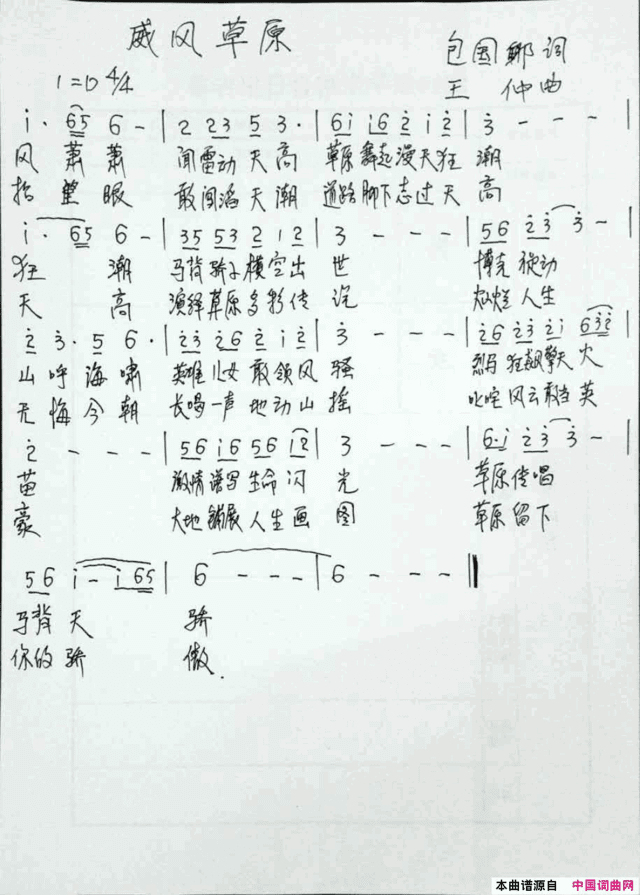 威风草原
包国卿词
1=D 4/4
王 仲曲
i· 65 6 - | 2 23 5 3· | 6i i6 2 i2 | 3 - - - |
风 萧 萧 闻雷动 天 高 草原 舞起 漫天狂 潮
抬 望 眼 敢闯滔 天 潮 道路 脚下 志过天 高
i· 65 6 - | 35 53 2 12 | 3 - - - | 56 23 3 - |
狂 潮 马背 骄子 横空出 世 博克 驰动
天 高 演绎 草原 多彩传 说 灿烂 人生
2 3· 5 6· | 23 26 2 i2 | 3 - - - | 26 23 2i 632 |
山 呼 海 啸 英雄 儿女 敢领风 骚 烈马 狂飙 擎天 火
无 悔 今 朝 长喝 一声 地动山 摇 叱咤 风云 敢当 英
2 - - - | 56 i6 56 i2 | 3 - - - | 6·i 23 3 - |
苗 激情 谱写 生命 闪 光 草原 传唱
豪 大地 铺展 人生 画 图 草原 留下
56 i - i65 | 6 - - - | 6 - - - ‖
马背 天 骄
你的 骄 傲.
本曲谱源自 中国词曲网